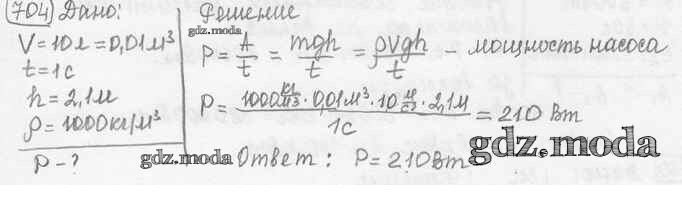 704) Дано:
V=10л=0,01м³
t=1с
h=2,1м
ρ=1000кг/м³
P-?
Решение
gdz.moda
P = A/t = mgh/t = ρVgh/t - мощность насоса
P = 1000 кг/м³ · 0,01м³ · 10 м/с² · 2,1м / 1с = 210 Вт
gdz.moda
Ответ: P=210Вт
gdz.moda